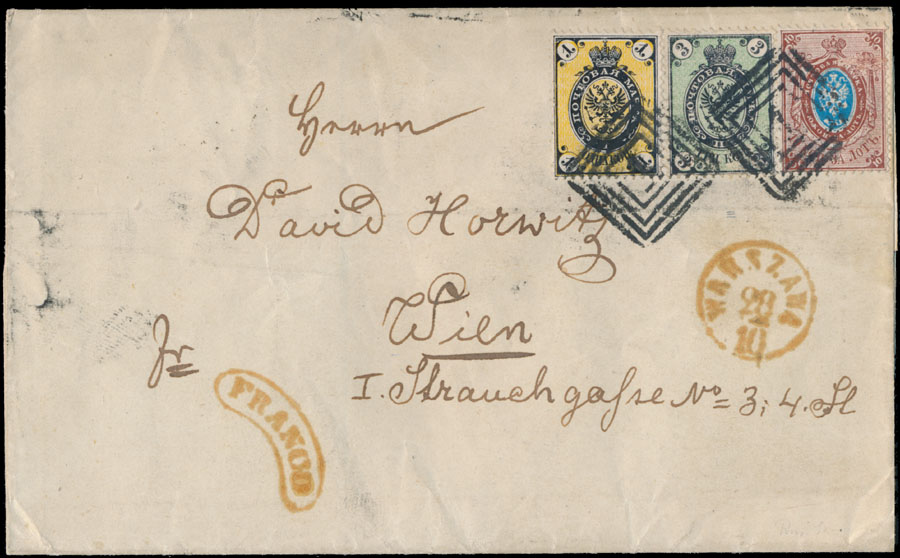 1 1 3 3 10 10
ПОЧТОВАЯ МА
ПОЧТОВАЯ
10
Herrn
Dr David Horwitz
WARSZAWA
28
10
Wien
Fr
FRANCO
I. Strauchgaſse No 3; 4. St